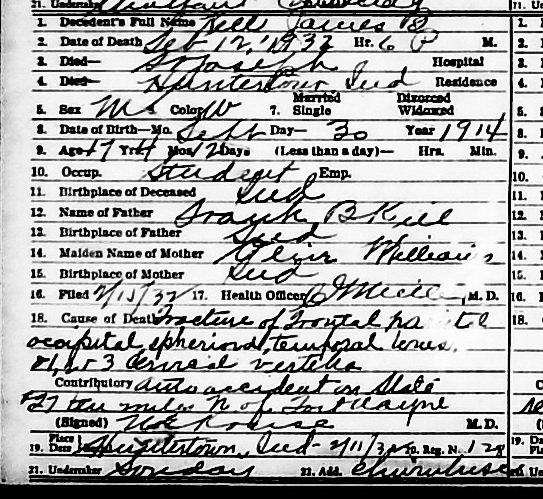 21. Undertaker
1. Decedent's Full Name Kell James B
2. Date of Death Feb 12, 1932 Hr. 6 P M.
3. Died— St Joseph Hospital
4. Died— Huntertown Ind Residence
5. Sex M Color W 7. Married Single Divorced Widowed
8. Date of Birth—Mo. Sept Day— 30 Year 1914
9. Age 17 Yrs 4 Mos 12 Days (Less than a day)— Hrs. Min.
10. Occup. Student Emp.
11. Birthplace of Deceased Ind
12. Name of Father Frank B Kell
13. Birthplace of Father Ind
14. Maiden Name of Mother Williams
15. Birthplace of Mother Ind
16. Filed 2/15/32 17. Health Officer M. D.
18. Cause of Death Fracture of frontal parietal
occipital sphenoid, temporal bones,
3 cervical vertebra
Contributory auto accident on State
#27 ten miles N of Fort Wayne
(Signed) M. D.
19. Place Date Huntertown, Ind - 20. Reg. N. 128
21. Undertaker Sonday 22. Add. Churubusco